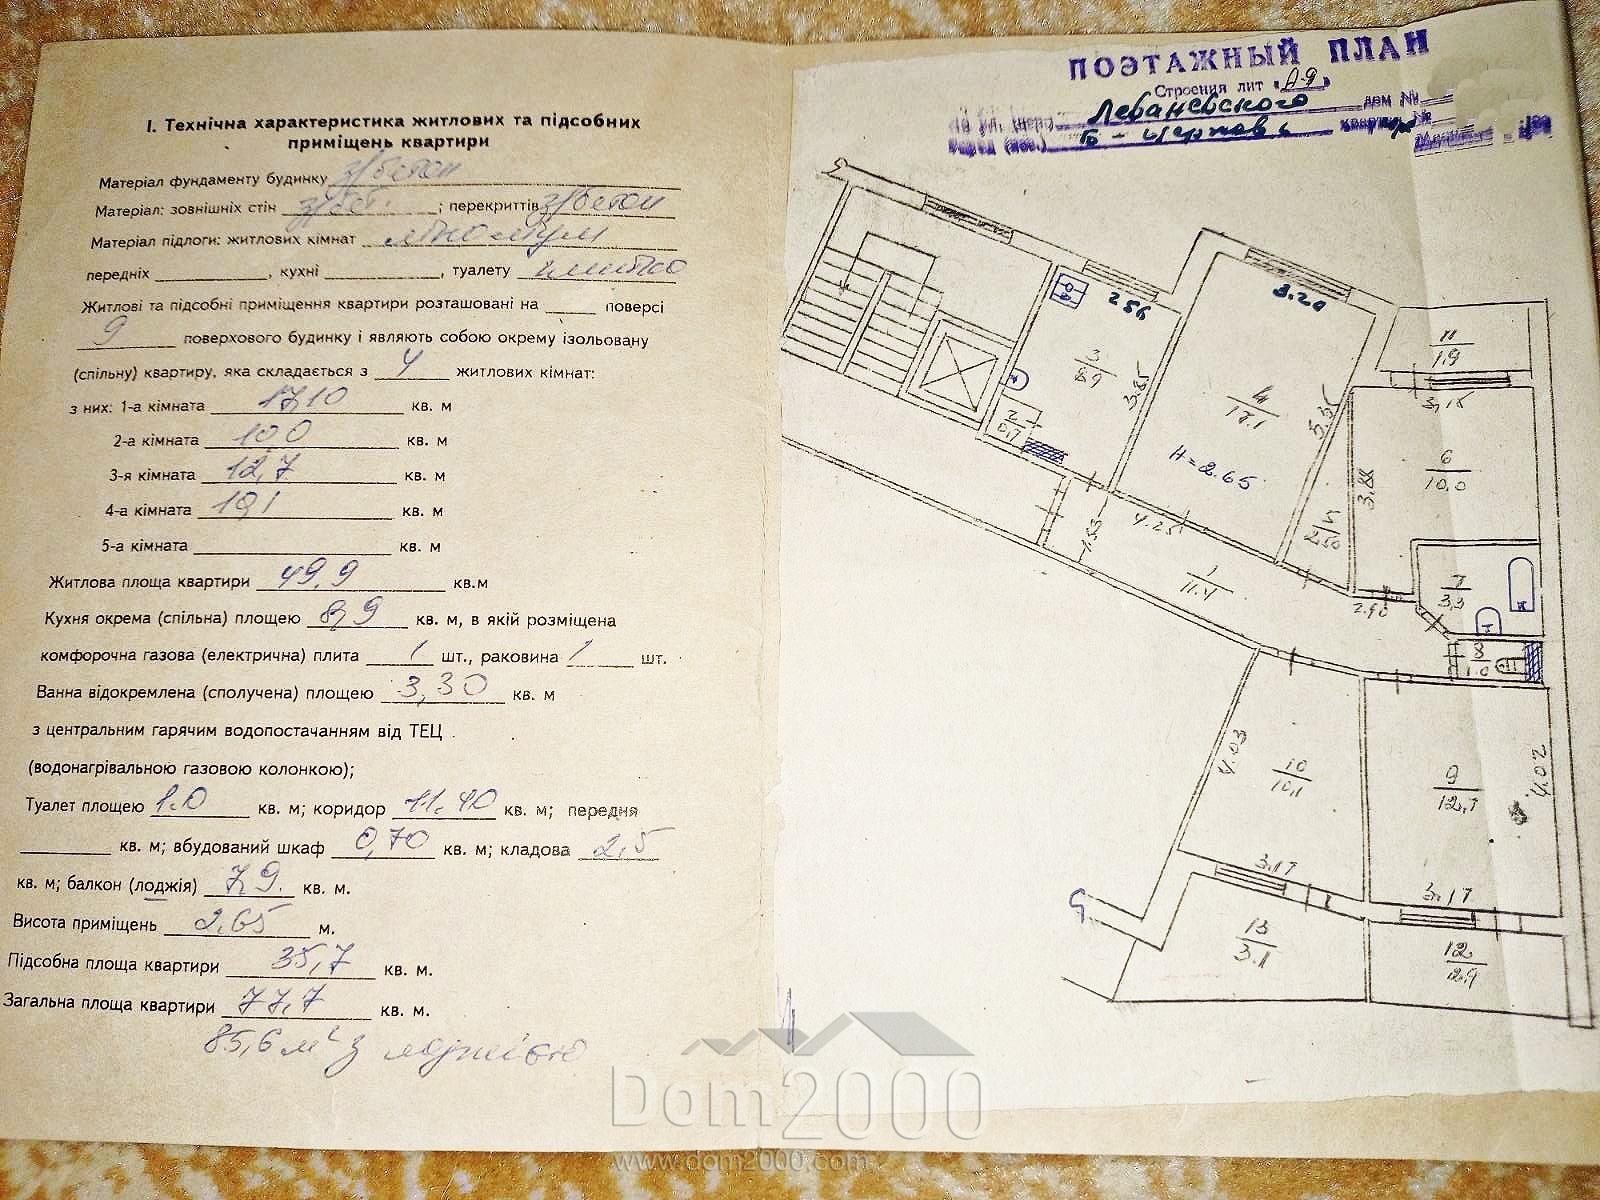 I. Технічна характеристика житлових та підсобних
приміщень квартири
Матеріал фундаменту будинку з/бетон
Матеріал: зовнішніх стін з/бет. ; перекриттів з/бетон
Матеріал підлоги: житлових кімнат лінолеум
передніх , кухні , туалету плитка
Житлові та підсобні приміщення квартири розташовані на поверсі
9 поверхового будинку і являють собою окрему ізольовану
(спільну) квартиру, яка складається з 4 житлових кімнат:
з них: 1-а кімната 17,10 кв. м
2-а кімната 10,0 кв. м
3-я кімната 12,7 кв. м
4-а кімната 10,1 кв. м
5-а кімната кв. м
Житлова площа квартири 49,9 кв.м
Кухня окрема (спільна) площею 8,9 кв. м, в якій розміщена
комфорочна газова (електрична) плита 1 шт., раковина 1 шт.
Ванна відокремлена (сполучена) площею 3,30 кв. м
з центральним гарячим водопостачанням від ТЕЦ
(водонагрівальною газовою колонкою);
Туалет площею 1.0 кв. м; коридор 11.40 кв. м; передня
кв. м; вбудований шкаф 0,70 кв. м; кладова 2,5
кв. м; балкон (лоджія) 7,9. кв. м.
Висота приміщень 2.65 м.
Підсобна площа квартири 35,7 кв. м.
Загальна площа квартири 77,7 кв. м.
85,6 м² з лоджією
ПОЭТАЖНЫЙ ПЛАН
Строения лит "А-9"
Леваневского дом №
Б-Церковь квартира №
2.56
3.20
3
8.9
3.85
2
0.7
4
17.1
5.35
H=2.65
11
1.9
3.15
6
10.0
3.88
5
2.50
4.25
1.53
1
11.4
2.90
7
3.3
8
1.0
4.03
10
10.1
9
12.7
4.02
3.17
3.17
13
3.1
12
2.9
Dom2000
www.dom2000.com